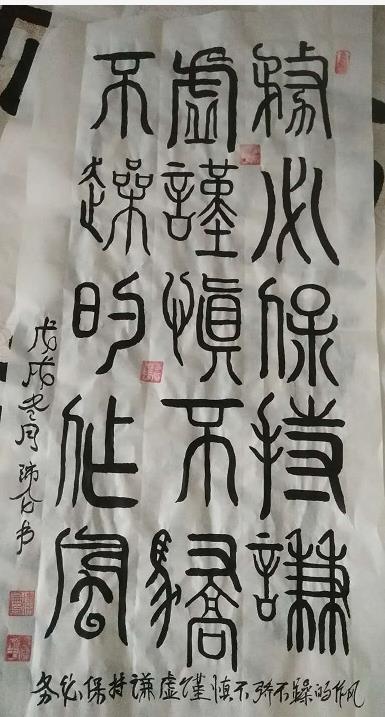 務必保持謙
虛謹慎不驕
不躁的作風
戊戌冬月 书
务必保持謙虚谨慎不骄不躁的作风